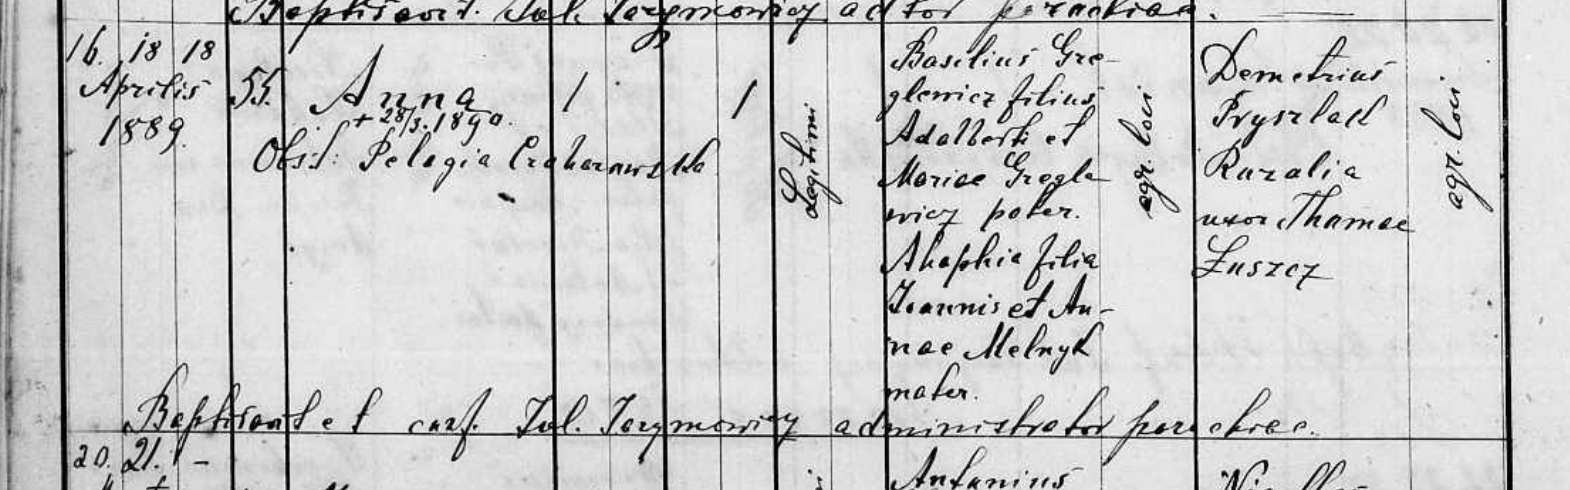 Baptisavit. Jul. Jarymowicz adtor parochiae.
16. 18 18
Aprilis
1889.
55.
Anna
+ 28/3. 1890.
Obst: Pelagia
1
1
Legitimi
Basilius Gre-
glewicz filius
Adalberti et
Mariae Gregle
wicz pater.
Ahaphia filia
Joannis et An-
nae Melnyk
mater.
agr. loci
Demetrius
Pryszlak
Rozalia
uxor Thomae
Łuszcz
agr. loci
Baptisavit et conf. Jul. Jarymowicz administrator parochiae.
20. 21. -
Antonius